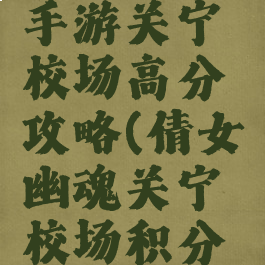 手游关宁
校场高分
攻略(倩女
幽魂关宁
校场积分